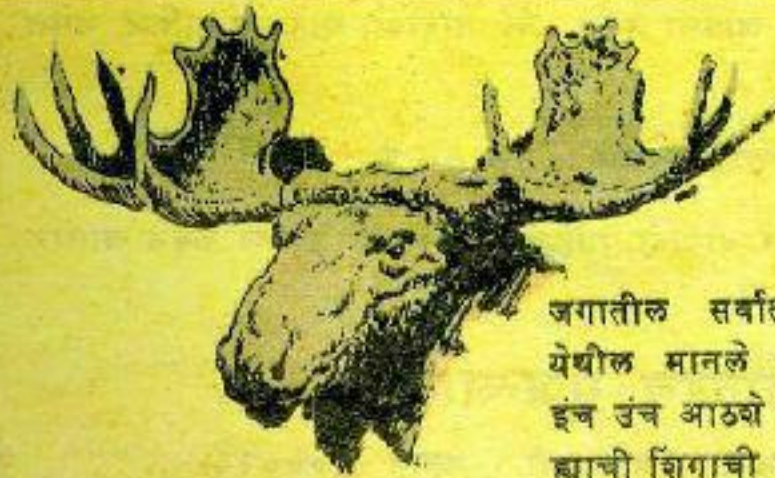 जगातील
येथील मानले
इंच उंच आठशे
ह्याची शिंगाची